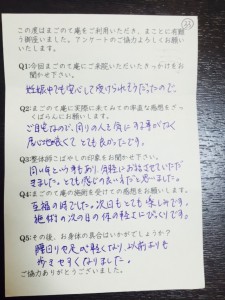 21
この度はまごのて庵をご利用いただき、まことに有難
う御座いました。アンケートのご協力よろしくお願い
いたします。
Q1:今回まごのて庵にご来院いただいたきっかけをお
聞かせ下さい。
妊娠中でも安心して受けられそうだったので。
Q2:まごのて庵に実際に来てみての率直な感想をざっ
くばらんにお聞かせ下さい。
ご自宅なので、周りの人を気にする事がなく
居心地良くてとても良かったです。
Q3:整体師こばやしの印象をお聞かせ下さい。
同い年という事もあり、気軽にお話させていただ
きました。とても感じの良い方だと思いました。
Q4:まごのて庵の施術を受けての感想をお願いします。
至福の時でした。次回もとても楽しみです。
施術の次の日の体の軽さにびっくりです。
Q5:その後、お身体の具合はいかがでしょうか？
腰回りや足が軽くなり、以前よりも
歩きやすくなりました。
ご協力ありがとうございました。